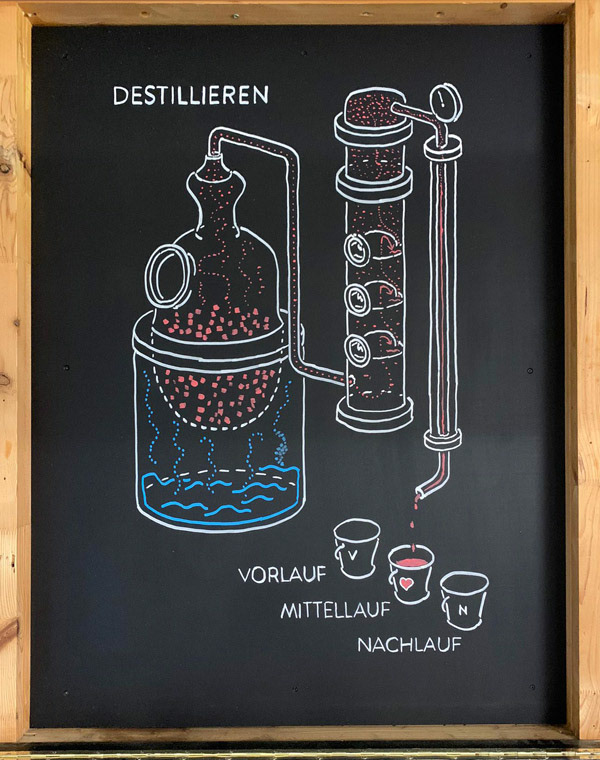 DESTILLIEREN
V
VORLAUF
MITTELLAUF
N
NACHLAUF